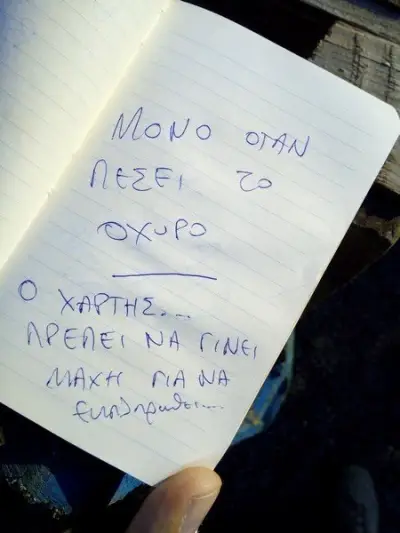 ΜΟΝΟ ΟΤΑΝ
ΠΕΣΕΙ ΤΟ
ΟΧΥΡΟ
Ο ΧΑΡΤΗΣ...
ΠΡΕΠΕΙ ΝΑ ΓΙΝΕΙ
ΜΑΧΗ ΓΙΑ ΝΑ
εκπληρωθει...